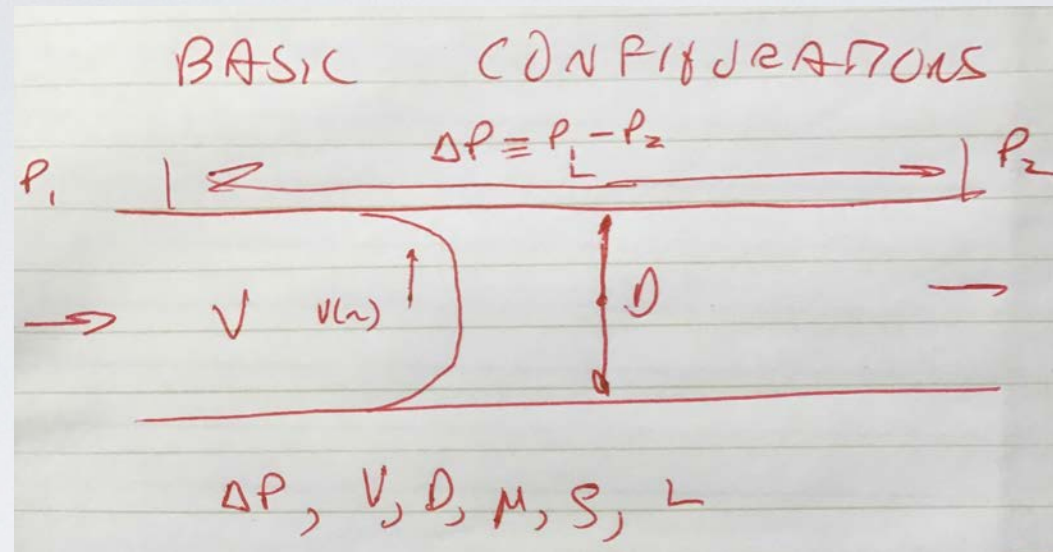 BASIC CONFIGURATIONS
ΔP ≡ P₁ - P₂
P₁
L
P₂
V
V(r)
D
ΔP, V, D, μ, ρ, L